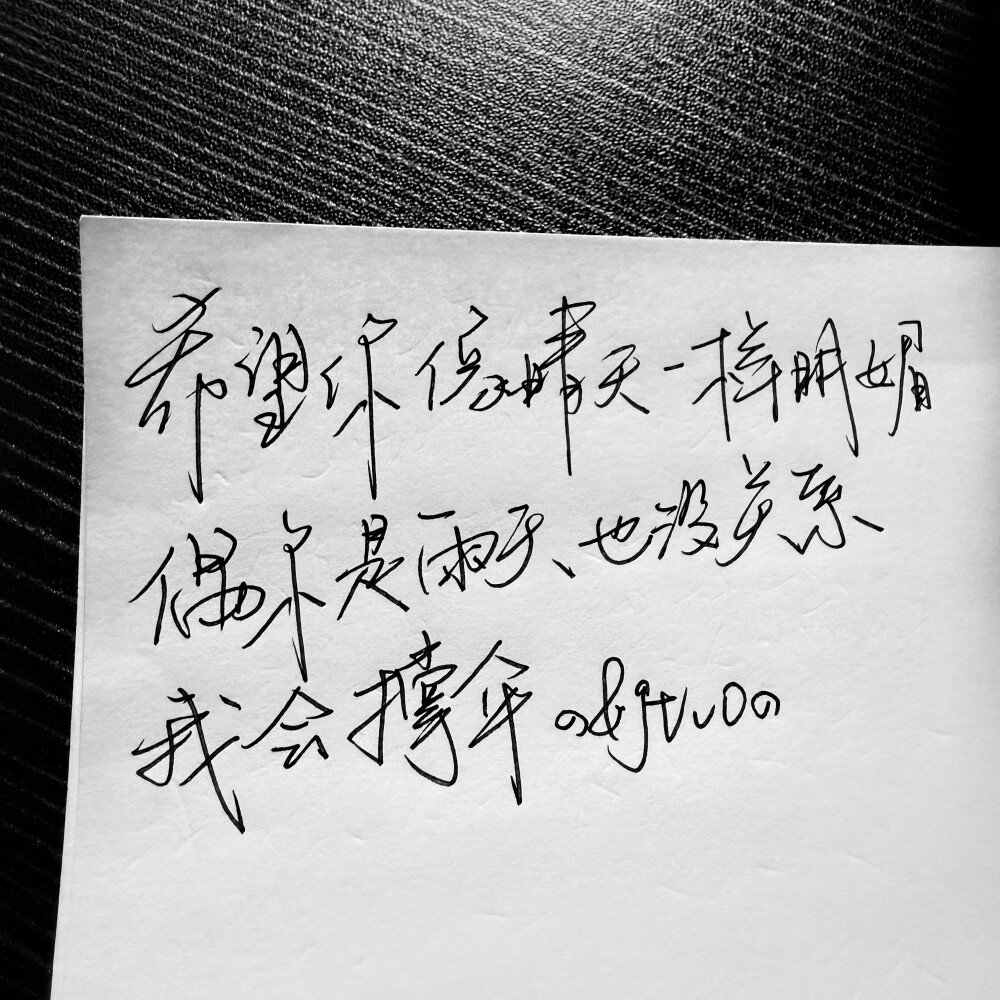 希望你像晴天一样明媚
偶尔是雨天、也没关系
我会撑伞